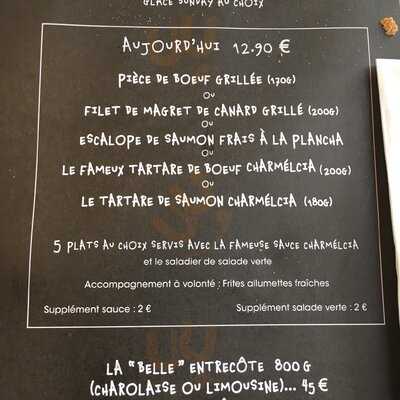 GLACE SUNDAY AU CHOIX
AUJOURD'HUI 12.90 €
PIÈCE DE BOEUF GRILLÉE (170G)
OU
FILET DE MAGRET DE CANARD GRILLÉ (200G)
OU
ESCALOPE DE SAUMON FRAIS À LA PLANCHA
OU
LE FAMEUX TARTARE DE BOEUF CHARMÉLCIA (200G)
OU
LE TARTARE DE SAUMON CHARMÉLCIA (180G)
5 PLATS AU CHOIX SERVIS AVEC LA FAMEUSE SAUCE CHARMÉLCIA
et le saladier de salade verte
Accompagnement à volonté : Frites allumettes fraîches
Supplément sauce : 2 € Supplément salade verte : 2 €
LA "BELLE" ENTRECÔTE 800 G
(CHAROLAISE OU LIMOUSINE)... 45 €